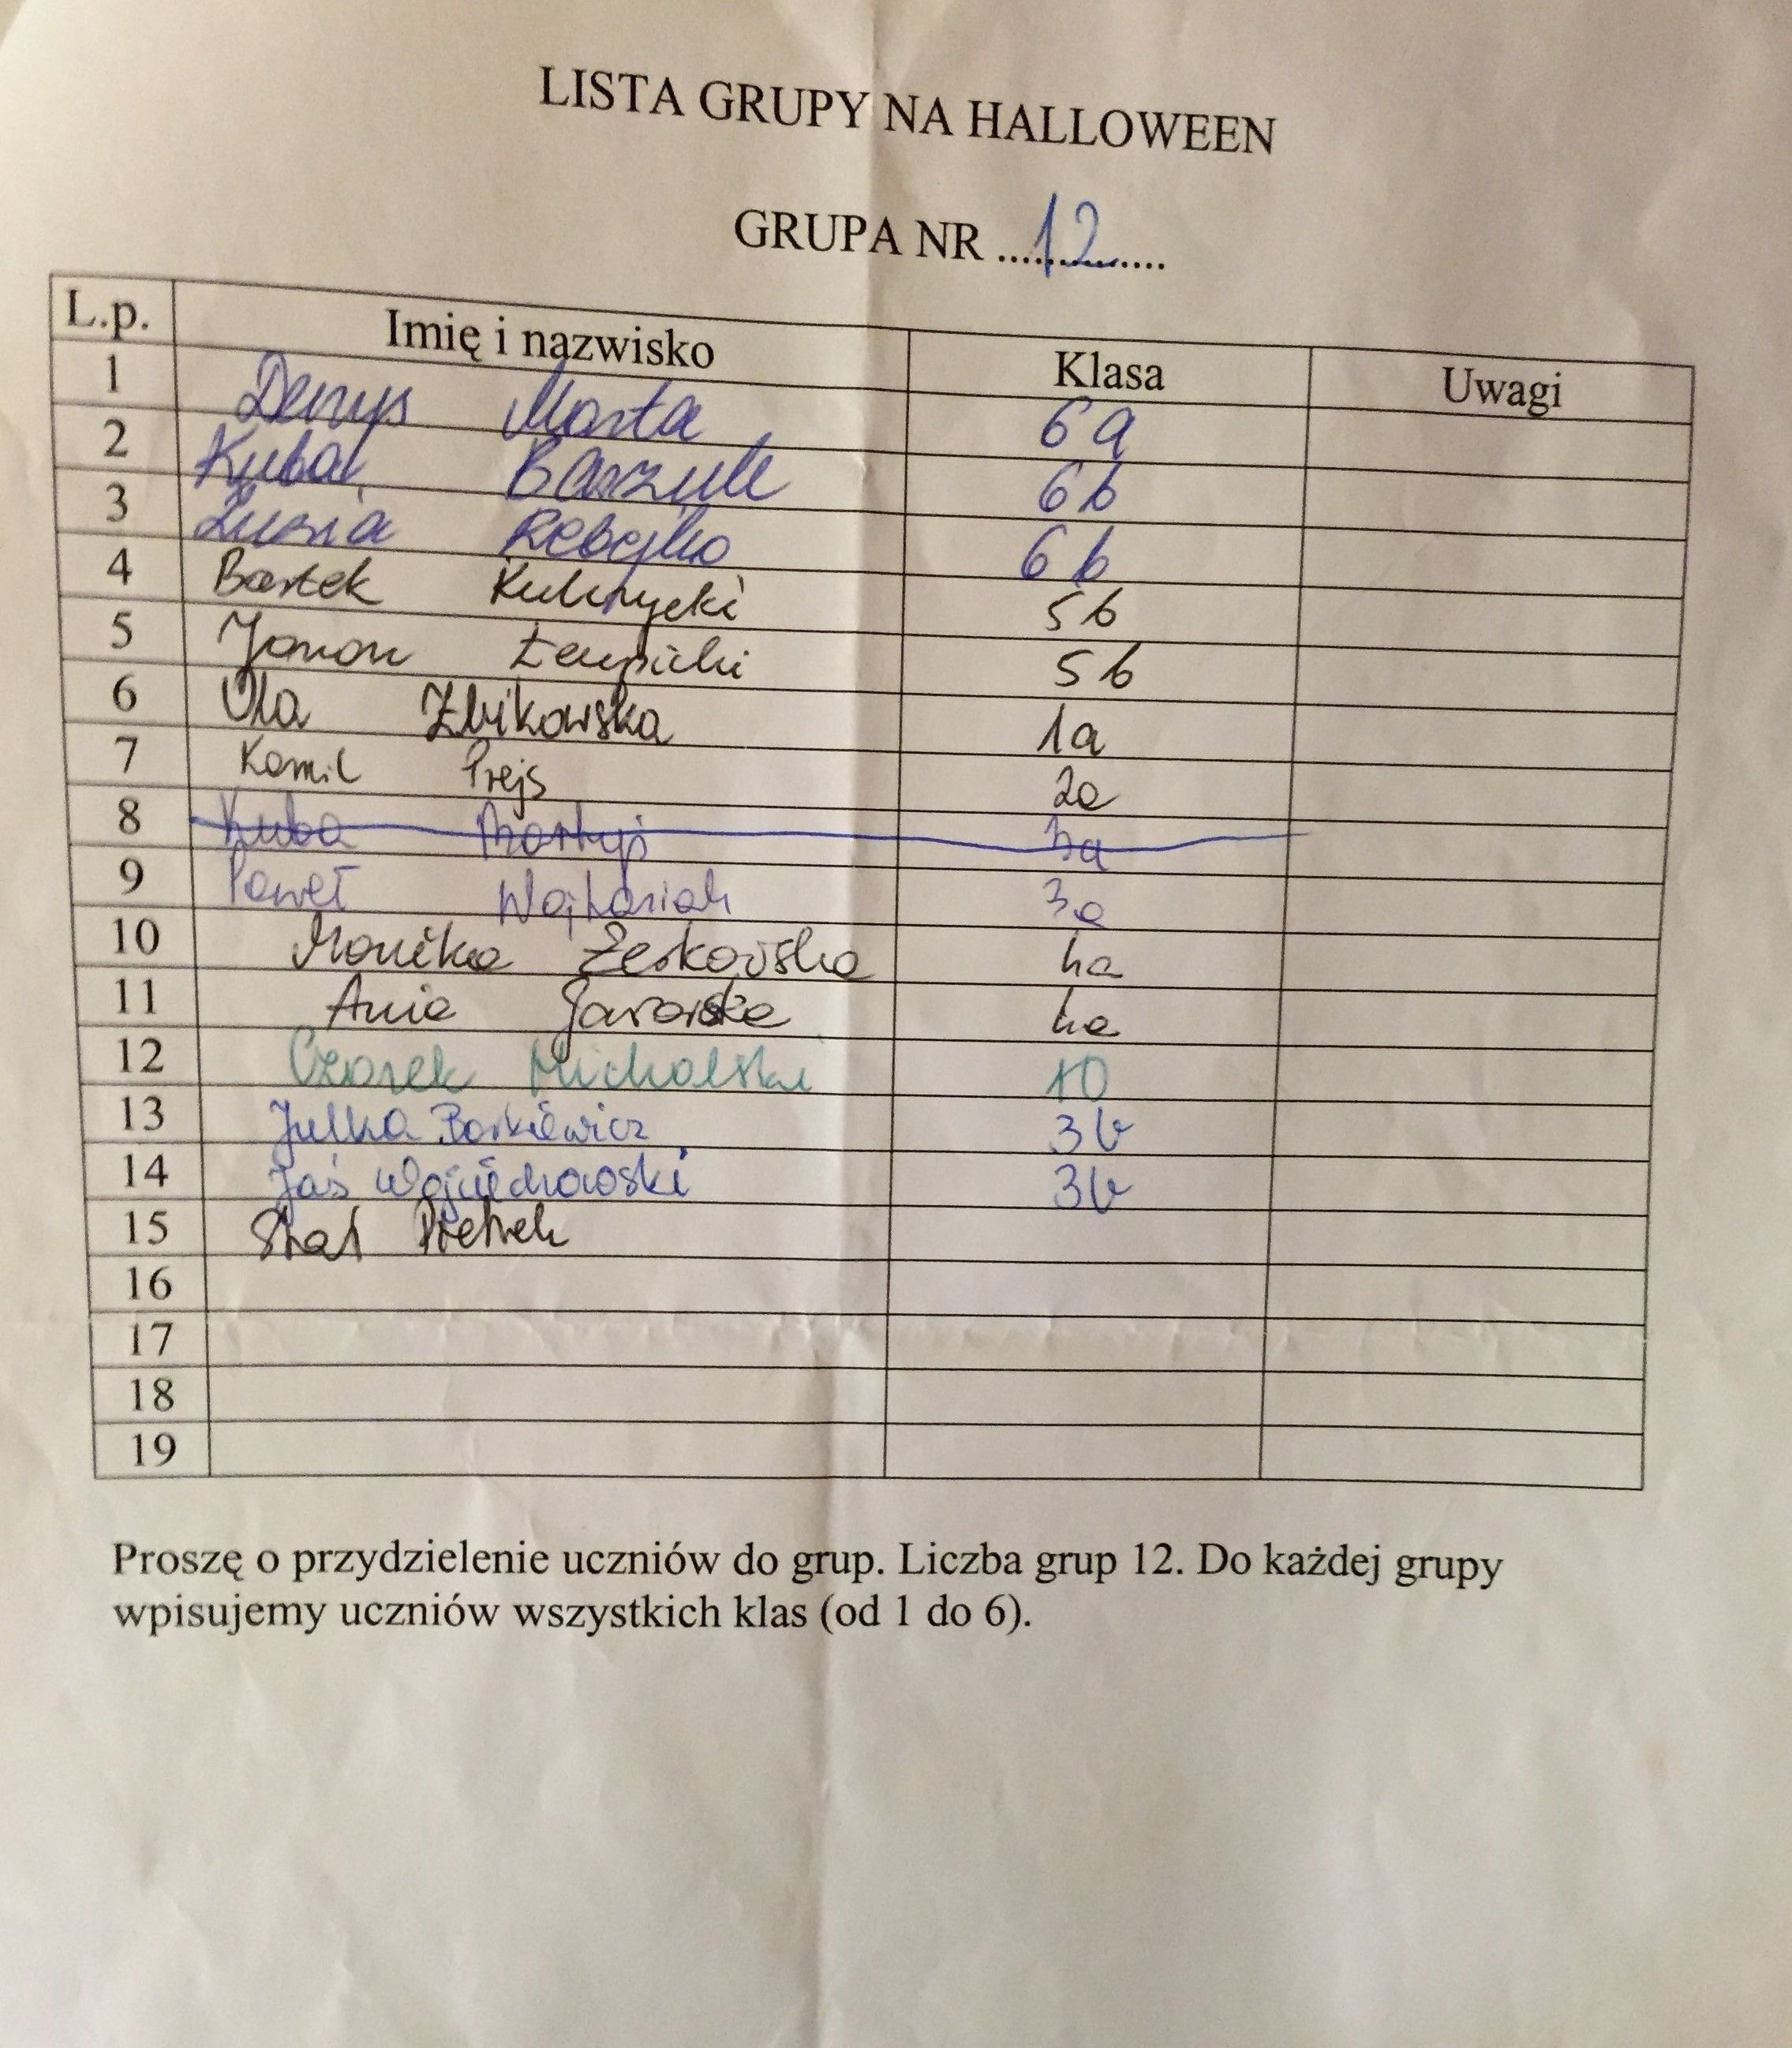 LISTA GRUPY NA HALLOWEEN
GRUPA NR ....12....
L.p. Imię i nazwisko Klasa Uwagi
1 Denys Marta 6a
2 Kuba 6b
3 Zuzia 6b
4 Bartek 5b
5 5b
6 Ola Żbikowska 1a
7 Kamil Prejs 2a
8 Kuba 3a
9 Paweł Wojtasiak 3a
10 Monika Żerkowska 4a
11 Ania 4a
12 Czarek Michalski
13 Julka Borkiewicz 3b
14 Jaś Wojciechowski 3b
15 Staś Pietrek
16
17
18
19
Proszę o przydzielenie uczniów do grup. Liczba grup 12. Do każdej grupy
wpisujemy uczniów wszystkich klas (od 1 do 6).